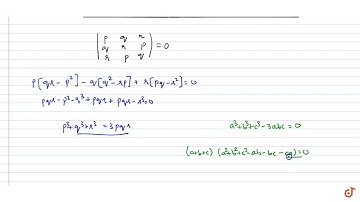 | p q r |
| q r p | = 0
| r p q |
p[qr - p²] - q[q² - rp] + r[pq - r²] = 0
pqr - p³ - q³ + pqr + pqr - r³ = 0
p³ + q³ + r³ = 3pqr
a³ + b³ + c³ - 3abc = 0
(a+b+c) (a² + b² + c² - ab - bc - ca) = 0